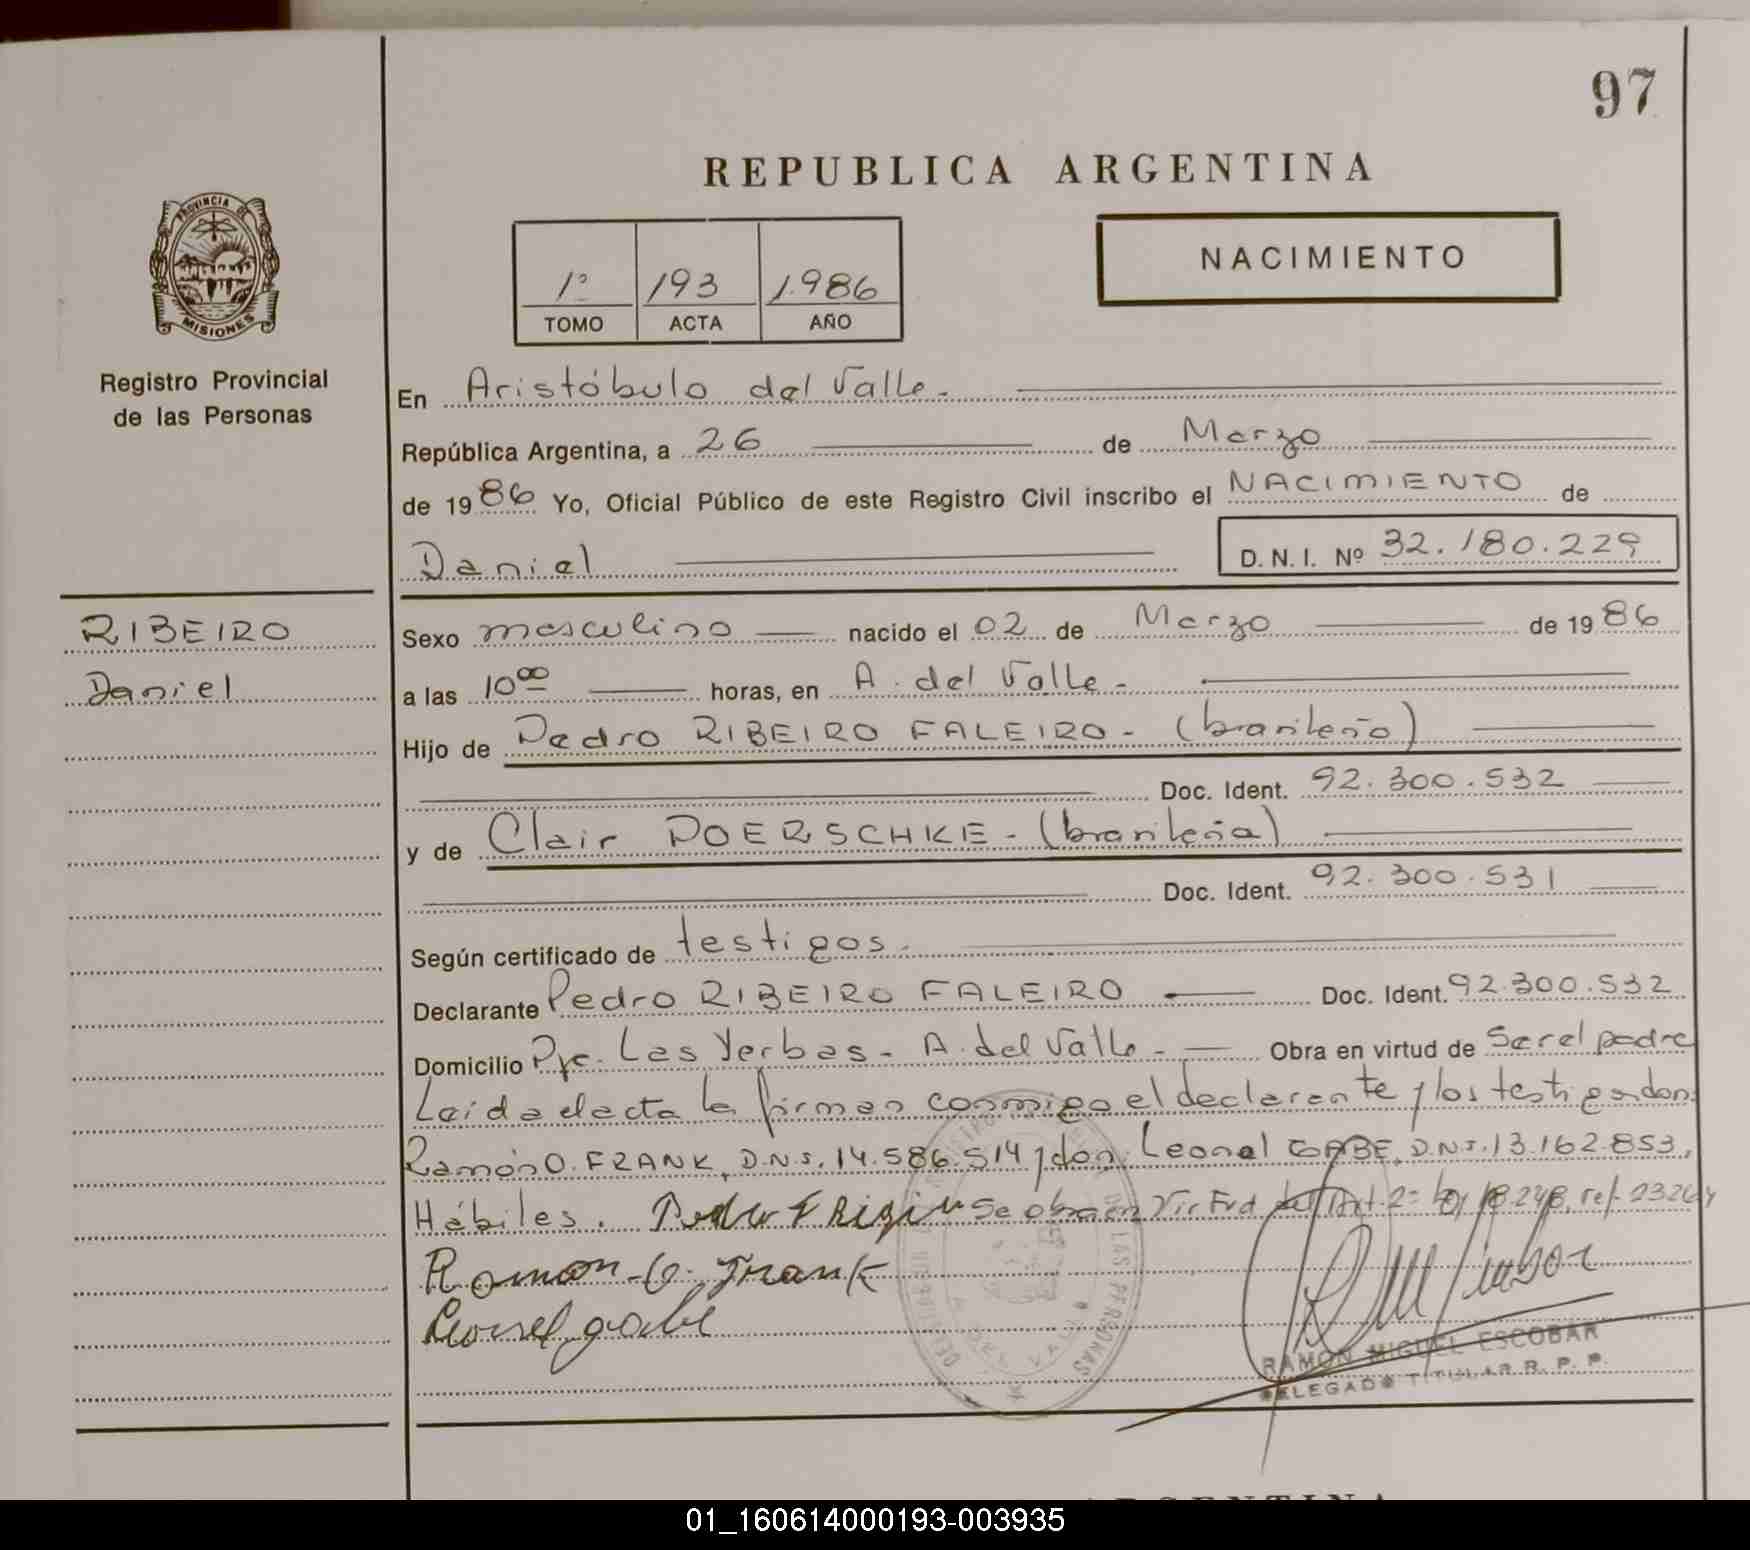 97
REPUBLICA ARGENTINA
PROVINCIA DE
MISIONES
Registro Provincial
de las Personas
1º 193 1.986
TOMO ACTA AÑO
NACIMIENTO
En Aristóbulo del Valle.
República Argentina, a 26 de Marzo
de 1986 Yo, Oficial Público de este Registro Civil inscribo el NACIMIENTO de
Daniel D. N. I. Nº 32.180.229
RIBEIRO
Daniel
Sexo masculino nacido el 02 de Marzo de 1986
a las 10 00 horas, en A. del Valle -
Hijo de Pedro RIBEIRO FALEIRO - (brasileño)
Doc. Ident. 92.300.532
y de Clair DOERSCHKE - (brasileña)
Doc. Ident. 92.300.531
Según certificado de testigos.
Declarante Pedro RIBEIRO FALEIRO Doc. Ident. 92.300.532
Domicilio Pje. Las Yerbas - A. del Valle - Obra en virtud de ser el padre
Leida el acta la firman conmigo el declarante y los testigos don:
Ramón O. FRANK, D.N.I. 14.586.514 y don: Leonel GABE, D.N.I. 13.162.853,
Hábiles. Se obra en Vir Art. 2º ley 18.248, ref. 23264
Ramon O. Frank
Leonel gabe
DE LAS PERSONAS
A. DEL VALLE
RAMON MIGUEL ESCOBAR
DELEGADO TITULAR R. P. P.
ARGENTINA
01_160614000193-003935